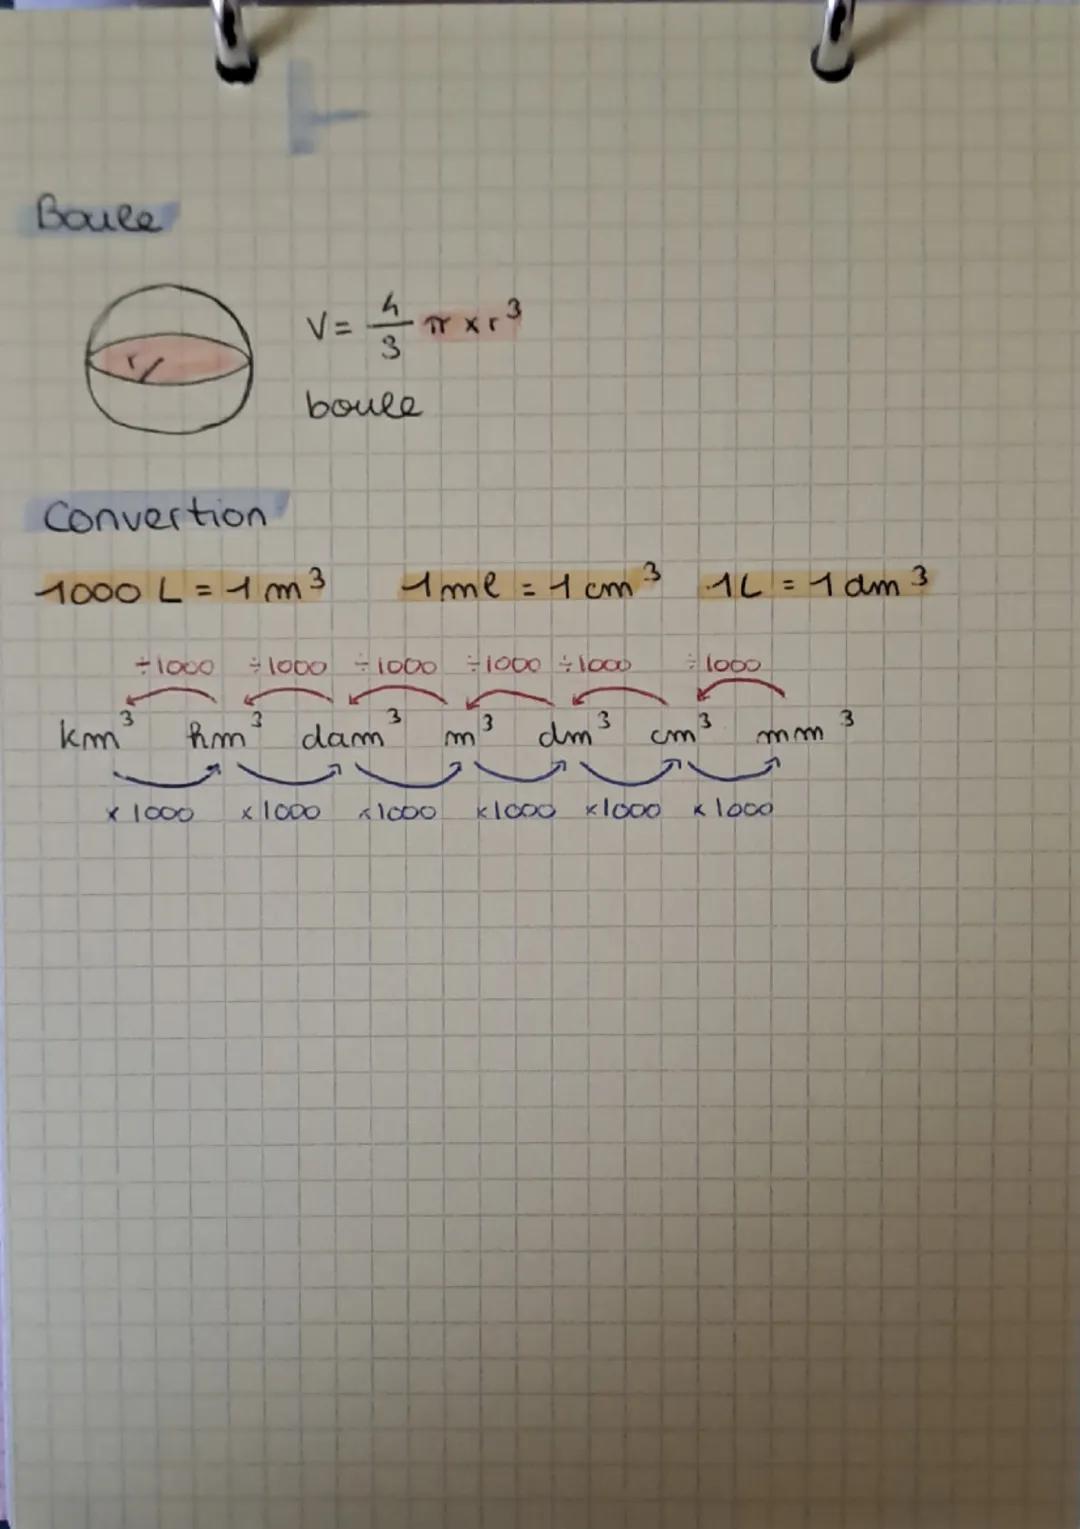 Boule
r
V = 4/3 π × r³
boule
Convertion
1000 L = 1 m³ 1 ml = 1 cm³ 1L = 1 dm³
÷1000 ÷1000 ÷1000 ÷1000 ÷1000 ÷1000
km³ hm³ dam³ m³ dm³ cm³ mm³
×1000 ×1000 ×1000 ×1000 ×1000 ×1000